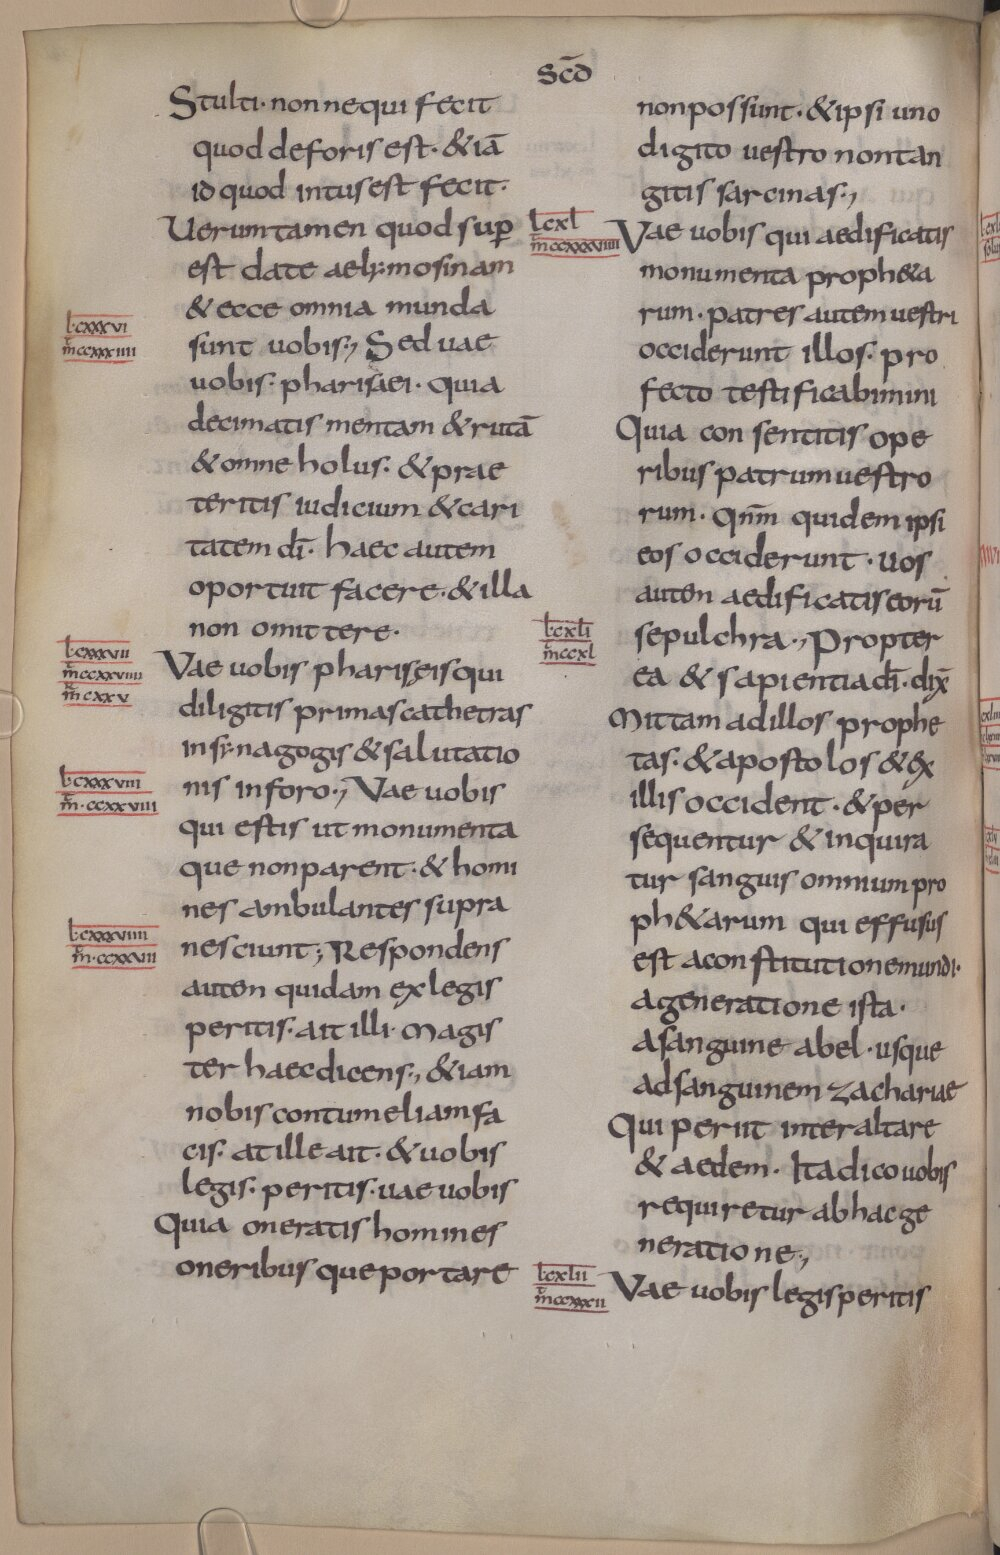 scd̄
Stulti· nonnequi fecit
quod deforis est· & iā
id quod intus est fecit·
Uerumtamen quod suꝑ
est date aelymosinam
& ecce omnia munda
l·cxxxvi
m̄ccxxxiiii
sunt uobis·, Sed uae
uobis· pharisaei· quia
decimatis mentam & rutā
& omne holus· & prae
teritis iudicium & cari
tatem dī· haec autem
oportuit facere· & illa
non omittere·
l·cxxxvii
m̄ccxxviiii
m̄cxxv
Vae uobis phariseis qui
diligitis primas cathetras
in synagogis & salutatio
l·cxxxviii
m̄·ccxxviii
nis in foro·, Vae uobis
qui estis ut monumenta
que non parent· & homi
nes ambulantes supra
l·cxxxviiii
m̄·ccxxvii
nesciunt; Respondens
autem quidam ex legis
peritis· ait illi· magis
ter haec dicens·, & iam
nobis contumeliam fa
cis· at ille ait· & uobis
legis· peritis· uae uobis
Quia oneratis homines
oneribus que portare
non possunt· & ipsi uno
digito uestro non tan
gitis sarcinas·,
l·cxl
m̄ccxxxviiii
Vae uobis qui aedificatis
monumenta proph&a
rum· patres autem uestri
occiderunt illos· pro
fecto testificabimini
Quia consentitis ope
ribus patrum uestro
rum· qnm̄ quidem ipsi
eos occiderunt· uos
autem aedificatis eorū
l·cxli
m̄ccxl
sepulchra·, Propter
ea & sapientia dī· dix̄
Mittam ad illos prophe
tas· & apostolos & ex
illis occident· & per
sequentur & inquira
tur sanguis omnium pro
ph&arum qui effusus
est a constitutione mundi·
a generatione ista·
A sanguine abel· usque
ad sanguinem zachariae
Qui periit inter altare
& aedem· Ita dico uobis
requiretur ab hac ge
neratione·,
l·cxlii
m̄ccxxxii
Vae uobis legis peritis